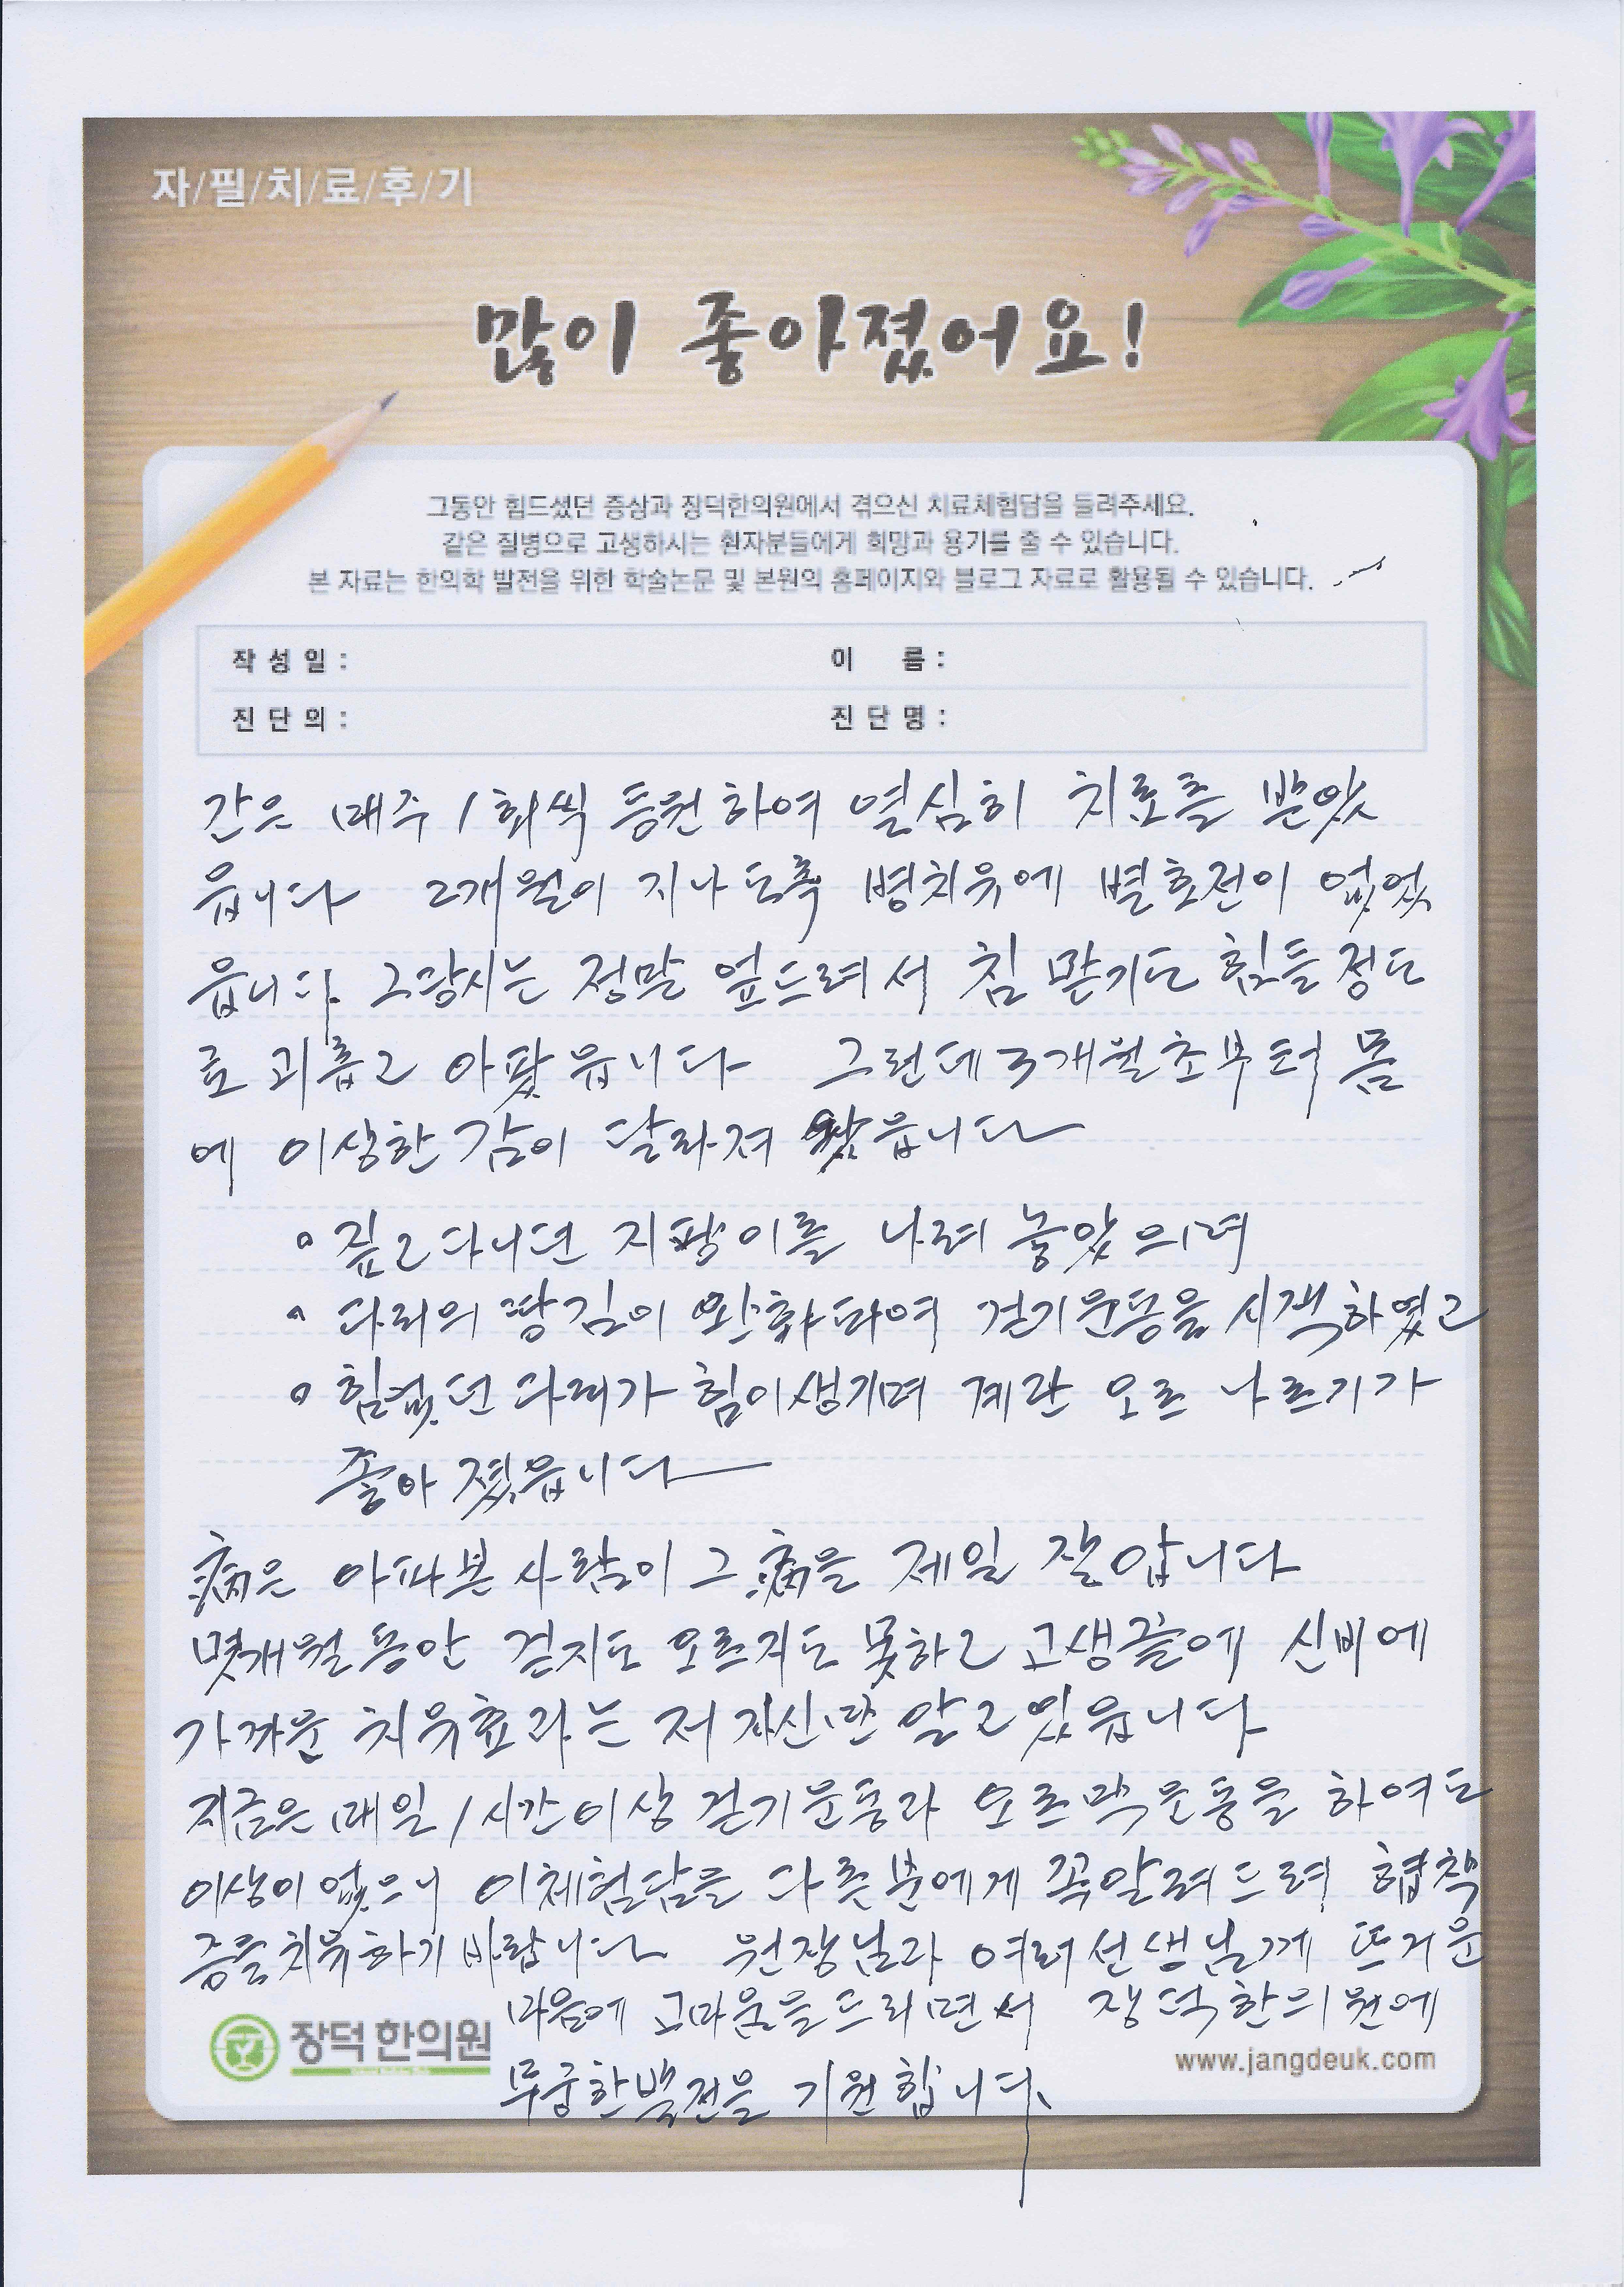 자/필/치/료/후/기
많이 좋아졌어요!
그동안 힘드셨던 증상과 장덕한의원에서 겪으신 치료체험담을 들려주세요.
같은 질병으로 고생하시는 환자분들에게 희망과 용기를 줄 수 있습니다.
본 자료는 한의학 발전을 위한 학술논문 및 본원의 홈페이지와 블로그 자료로 활용될 수 있습니다.
작 성 일 : 이 름 :
진 단 의 : 진 단 명 :
간은 매주 1회씩 등원하여 열심히 치료를 받았
읍니다 2개월이 지나도록 병치유에 별효전이 없었
읍니다. 그당시는 정말 엎드려서 침 맏기도 힘들정도
로 괴롭고 아팠읍니다 그런데 3개월초부터 몸
에 이상한 감이 달라져 왔읍니다
◦ 짚고다니던 지팡이를 나려 놓았으며
◦ 다리의 땅김이 완화되여 걷기운동을 시작하였고
◦ 힘없던 다리가 힘이생기며 계단 오르 나르기가
좋아 졌읍니다
病은 아파본 사람이 그 病을 제일 잘압니다
몇개월 동안 걷지도 오르지도 못하고 고생끝에 신비에
가까운 치유효과는 저 자신만 알고 있읍니다
지금은 매일 1시간 이상 걷기운동과 오르막운동을 하여도
이상이 없으니 이체험담을 다른분에게 꼭알려드려 협착
증을 치유하기 바랍니다 원장님과 여러선생님께 뜨거운
마음에 고마움을 드리면서 장덕한의원에
무궁한 발전을 기원합니다.
장덕한의원
www.jangdeuk.com